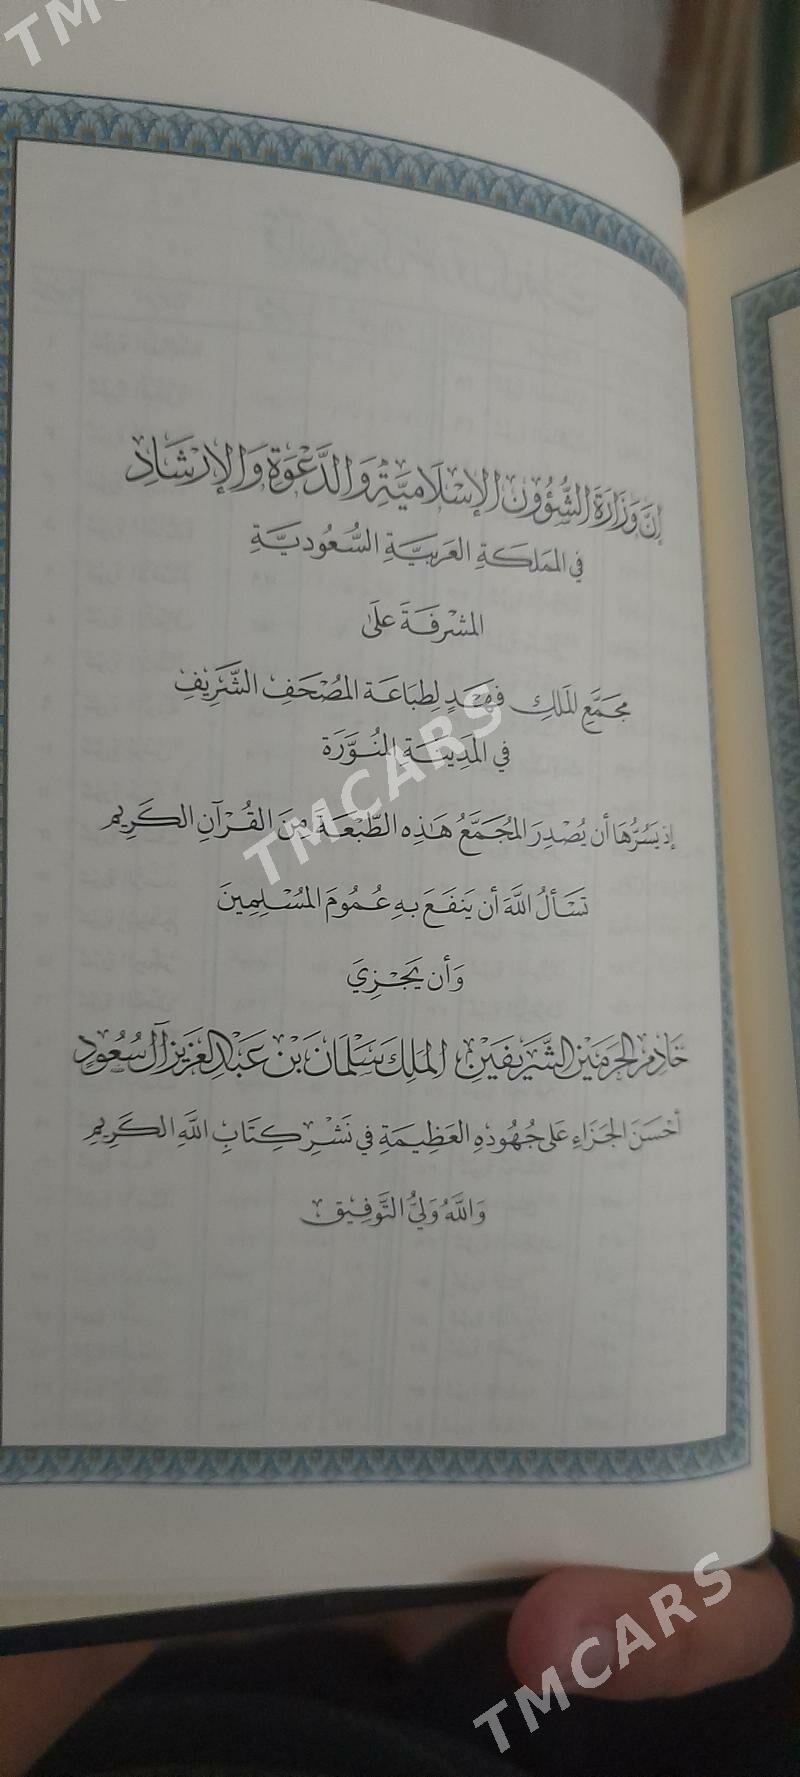 TMCARS
إِنَّ وَزَارَةَ الشُّؤُونِ الإِسْلَامِيَّةِ وَالدَّعْوَةِ وَالإِرْشَادِ
فِي المَمْلَكَةِ العَرَبِيَّةِ السُّعُودِيَّةِ
المُشْرِفَةَ عَلَى
مُجَمَّعِ المَلِكِ فَهْدٍ لِطِبَاعَةِ المُصْحَفِ الشَّرِيفِ
فِي المَدِينَةِ المُنَوَّرَةِ
TMCARS
إِذْ يَسُرُّهَا أَن يُصْدِرَ المُجَمَّعُ هَذِهِ الطَّبْعَةَ مِنَ القُرْآنِ الكَرِيمِ
تَسْأَلُ اللَّهَ أَن يَنفَعَ بِهِ عُمُومَ المُسْلِمِينَ
وَأَن يَجْزِيَ
خَادِمَ الحَرَمَيْنِ الشَّرِيفَيْنِ المَلِكَ سَلْمَانَ بْنَ عَبْدِ العَزِيزِ آل سُعُودٍ
أَحْسَنَ الجَزَاءِ عَلَى جُهُودِهِ العَظِيمَةِ فِي نَشْرِ كِتَابِ اللَّهِ الكَرِيمِ
وَاللَّهُ وَلِيُّ التَّوْفِيقِ
TMCARS